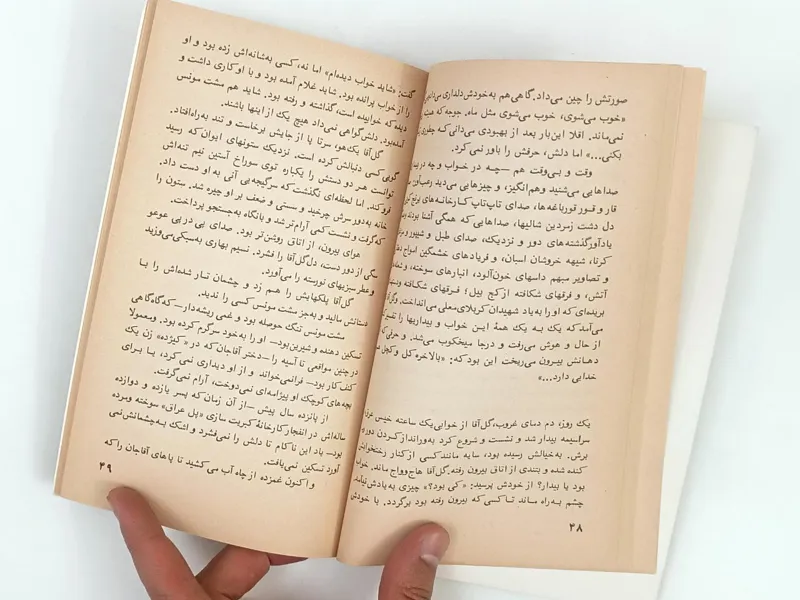 صورتش را چین می‌داد. گاهی هم به خودش دلداری می‌داد
«خوب می‌شوی، خوب می‌شوی مثل ماه. جوجه که همیشه
نمی‌ماند. اقلا این‌بار بعد از بهبودی می‌دانی که چطوری
بکنی...» اما دلش، حرفش را باور نمی‌کرد.
وقت و بی‌وقت هم —چه در خواب و چه در
صداهایی می‌شنید وهم‌انگیز، و چیزهایی می‌دید رعب‌آور
قار و قور قورباغه‌ها، صدای تاپ‌تاپ کارخانه‌های برنج
دل دشت زمردین شالیها، صداهایی که همگی آشنا بودند
یادآور گذشته‌های دور و نزدیک، صدای طبل و شیپور و
کرنا، شیهه خروشان اسبان، و فریادهای خشمگین امواج
و تصاویر مبهم داسهای خون‌آلود، انبارهای سوخته، و
آتش، و فرقهای شکافته از کج بیل؛ فرقهای شکافته و
بریده‌ای که او را به یاد شهیدان کربلای معلی می‌انداخت.
می‌آمد که یک به یک همهٔ این خواب و بیداریها را
از حال و هوش می‌رفت و درجا میخکوب می‌شد. و
دهانش بیرون می‌ریخت این بود که: «بالاخره کل و کچل
خدایی دارد...»
یک روز، دم دمای غروب، گل‌آقا از خوابی یک ساعته خیس
سراسیمه بیدار شد و نشست و شروع کرد به ورانداز کردن دور
برش. به خیالش رسیده بود، سایه مانند کسی از کنار رختخوابش
کنده شده و بتندی از اتاق بیرون رفته. گل‌آقا هاج‌وواج ماند. خواب
بود یا بیدار؟ از خودش پرسید: «کی بود؟» چیزی به یادش نیامد.
چشم به راه ماند تا کسی که بیرون رفته بود برگردد. با خودش
۴۸
گفت: «شاید خواب دیده‌ام» اما نه، کسی به شانه‌اش زده بود و او
را از خواب پرانده بود. شاید غلام آمده بود و با او کاری داشت و
دیده که خوابیده است، گذاشته و رفته بود. شاید هم مشت مونس
آمده‌بود. دلش گواهی نمی‌داد هیچ یک از اینها باشند.
گل‌آقا یک‌هو، سرتا پا از جایش برخاست و تند به راه‌افتاد.
گویی کسی دنبالش کرده است. نزدیک ستونهای ایوان که رسید
توانست هر دو دستش را یکباره توی سوراخ آستین نیم تنه‌اش
فرو کند. اما لحظه‌ای نگذشت که سرگیجه‌یی آنی به او دست داد.
خانه به‌دور سرش چرخید و سستی و ضعف بر او چیره شد. ستون را
که گرفت و نشست کمی آرام‌تر شد و با نگاه به‌جستجو پرداخت.
هوای بیرون، از اتاق روشن‌تر بود. صدای پی درپی عوعو
سگی از دور دست، دل گل‌آقا را فشرد. نسیم بهاری به‌سبکی می‌وزید
و عطر سبزیهای نورسته را می‌آورد.
گل‌آقا پلکهایش را هم زد و چشمان تار شده‌اش را با
دستانش مالید و به‌جز مشت مونس کسی را ندید.
مشت مونس تنگ حوصله بود و غمی ریشه‌دار—که گاه گاهی
تسکین دهنده و شیرین بود— او را به خود سرگرم کرده بود. و معمولا
در چنین مواقعی تا آسیه را —دختر آقاجان که در «کیژده» زن یک
کنف کار بود— فرا نمی‌خواند و از او دیداری نمی‌کرد، یا برای
بچه‌های کوچک او پیژامه‌ای نمی‌دوخت، آرام نمی‌گرفت.
از پانزده سال پیش —از آن زمان که پسر یازده و دوازده
ساله‌اش در انفجار کارخانهٔ کبریت سازی «پل عراق» سوخته و مرده
بود— یاد این ناکام تا دلش را نمی‌فشرد و اشک به‌چشمانش نمی
آورد تسکین نمی‌یافت.
و اکنون غمزده از چاه آب می‌کشید تا پاهای آقاجان را که
۴۹